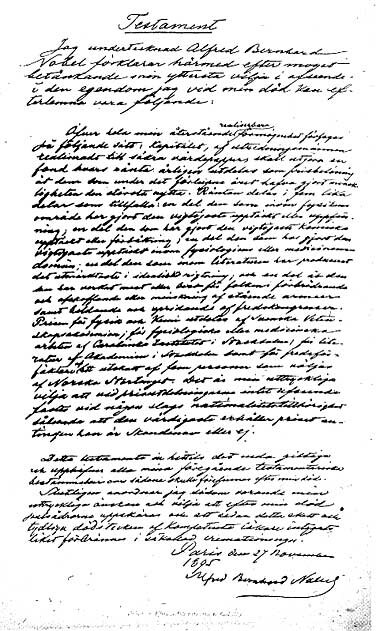 Testament
Jag undertecknad Alfred Bernhard
Nobel förklarar härmed efter moget
betänkande min yttersta vilja i afseende
å den egendom jag vid min död kan ef-
terlemna vara följande:
realiserbara
Öfver hela min återstående förmögenhet förfoges
på följande sätt: kapitalet, af utredningsmännen
realiseradt till säkra värdepapper, skall utgöra en
fond hvars ränta årligen utdelas som prisbelöning
åt dem som under det förlupne året hafva gjort mensk-
ligheten den största nytta. Räntan delas i fem lika
delar som tillfalla: en del den som inom fysikens
område har gjort den vigtigaste upptäckt eller uppfin-
ning; en del den som har gjort den vigtigaste kemiska
upptäckt eller förbättring; en del den som har gjort den
vigtigaste upptäckt inom fysiologiens eller medicinens
domän; en del den som inom literaturen har producerat
det utmärktaste i idealisk rigtning; och en del åt den
som har verkat mest eller best för folkens förbrödrande
och afskaffande eller minskning af stående armeer
samt bildande och spridande af fredskongresser.
Prisen för fysik och kemi utdelas af Svenska Veten-
skapsakademien; för fysiologiska eller medicinska
arbeten af Carolinska Institutet i Stockholm; för lite-
ratur af Akademien i Stockholm samt för fredsför-
fäktare af ett utskott af fem personer som väljas
af Norska Stortinget. Det är min uttryckliga
vilja att vid prisutdelningarne intet afseende
fästes vid någon slags nationalitetstillhörighet
sålunda att den värdigaste erhåller priset an-
tingen han är Skandinav eller ej.
Detta testamente är hittills det enda giltiga
och upphäfver alla mina föregående testamentariska
bestämmelser om sådane skulle förefinnas efter min död.
Slutligen anordnar jag såsom varande min
uttryckliga önskan och vilja att efter min död
pulsådrorna uppskäras och att sedan detta skett och
tydliga dödstecken af kompetenta läkare intygats
liket förbrännes i såkallad crematorieugn.
Paris den 27 November
1895
Alfred Bernhard Nobel